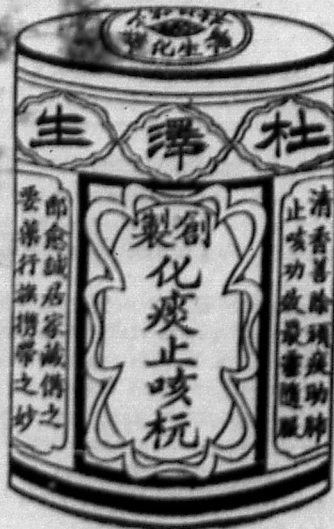 杜澤生
創製
化痰止咳杬
清香善除頑痰助肺
止咳功效最靈隨服
即愈誠居家藏備之
要藥行旅携帶之妙